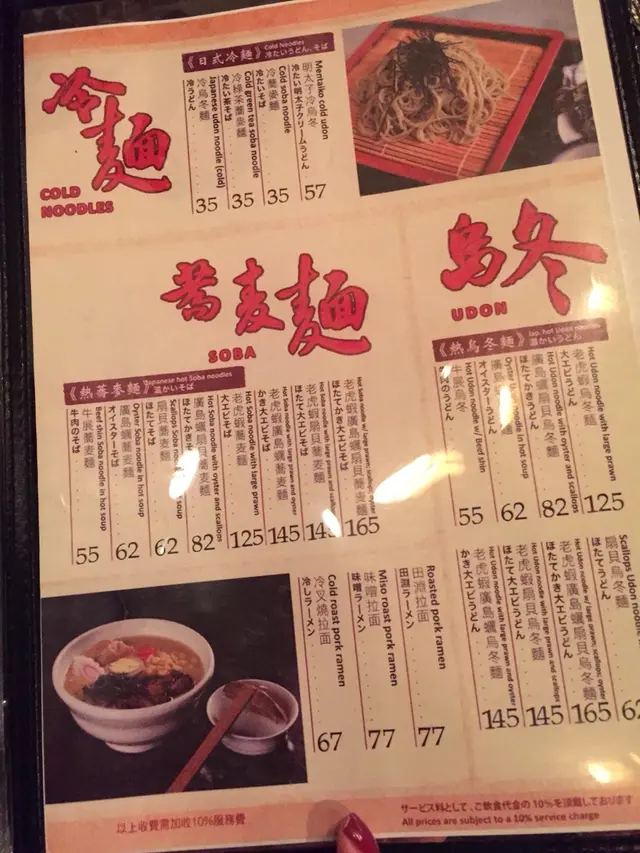 冷麵
COLD
NOODLES
《日式冷麵》
Cold Noodles
冷たいうどん、そば
Mentaiko cold udon
明太子冷烏冬
冷たい明太子クリームうどん
57
Cold soba noodle
冷蕎麥麵
冷たいそば
35
Cold green tea soba noodle
冷綠茶蕎麥麵
冷たい茶そば
35
Japanese udon noodle (cold)
冷烏冬麵
冷うどん
35
蕎麦麺
SOBA
《熱蕎麥麵》
Japanese hot Soba noodles
温かいそば
老虎蝦廣島蠣扇貝蕎麥麵
ほたてかき大エビそば
165
老虎蝦扇貝蕎麥麵
ほたて大エビそば
145
老虎蝦廣島蠣蕎麥麵
かき大エビそば
145
Hot Soba noodle with large prawn
老虎蝦蕎麥麵
大エビそば
125
Hot Soba noodle with oyster and scallops
廣島蠣扇貝蕎麥麵
82
扇貝蕎麥麵
ほたてそば
62
Oyster Soba noodle in hot soup
廣島蠣蕎麥麵
オイスターそば
62
Beef shin Soba noodle in hot soup
牛展蕎麥麵
牛肉のそば
55
烏冬
UDON
《熱烏冬麵》
Jap. hot Udon noodles
温かいうどん
Hot Udon noodle with large prawn
老虎蝦烏冬麵
大エビうどん
125
Hot Udon noodle with oyster and scallops
廣島蠣扇貝烏冬麵
ほたてかきうどん
82
オイスターうどん
62
Hot Udon noodle w/ Beef shin
牛展烏冬
55
Scallops Udon noodle
扇貝烏冬麵
ほたてうどん
62
Hot Udon noodle w/ large prawn, scallops, oyster
老虎蝦廣島蠣扇貝烏冬麵
ほたてかき大エビうどん
165
Hot Udon noodle with large prawn and scallops
老虎蝦扇貝烏冬麵
ほたて大エビうどん
145
Hot Udon noodle with large prawn and oyster
老虎蝦廣島蠣烏冬麵
かき大エビうどん
145
Roasted pork ramen
田淵拉面
田淵ラーメン
77
Miso roast pork ramen
味噌拉面
味噌ラーメン
77
Cold roast pork ramen
冷叉燒拉面
冷しラーメン
67
以上收費需加收10%服務費
サービス料として、ご飲食代金の10%を頂戴しております
All prices are subject to a 10% service charge